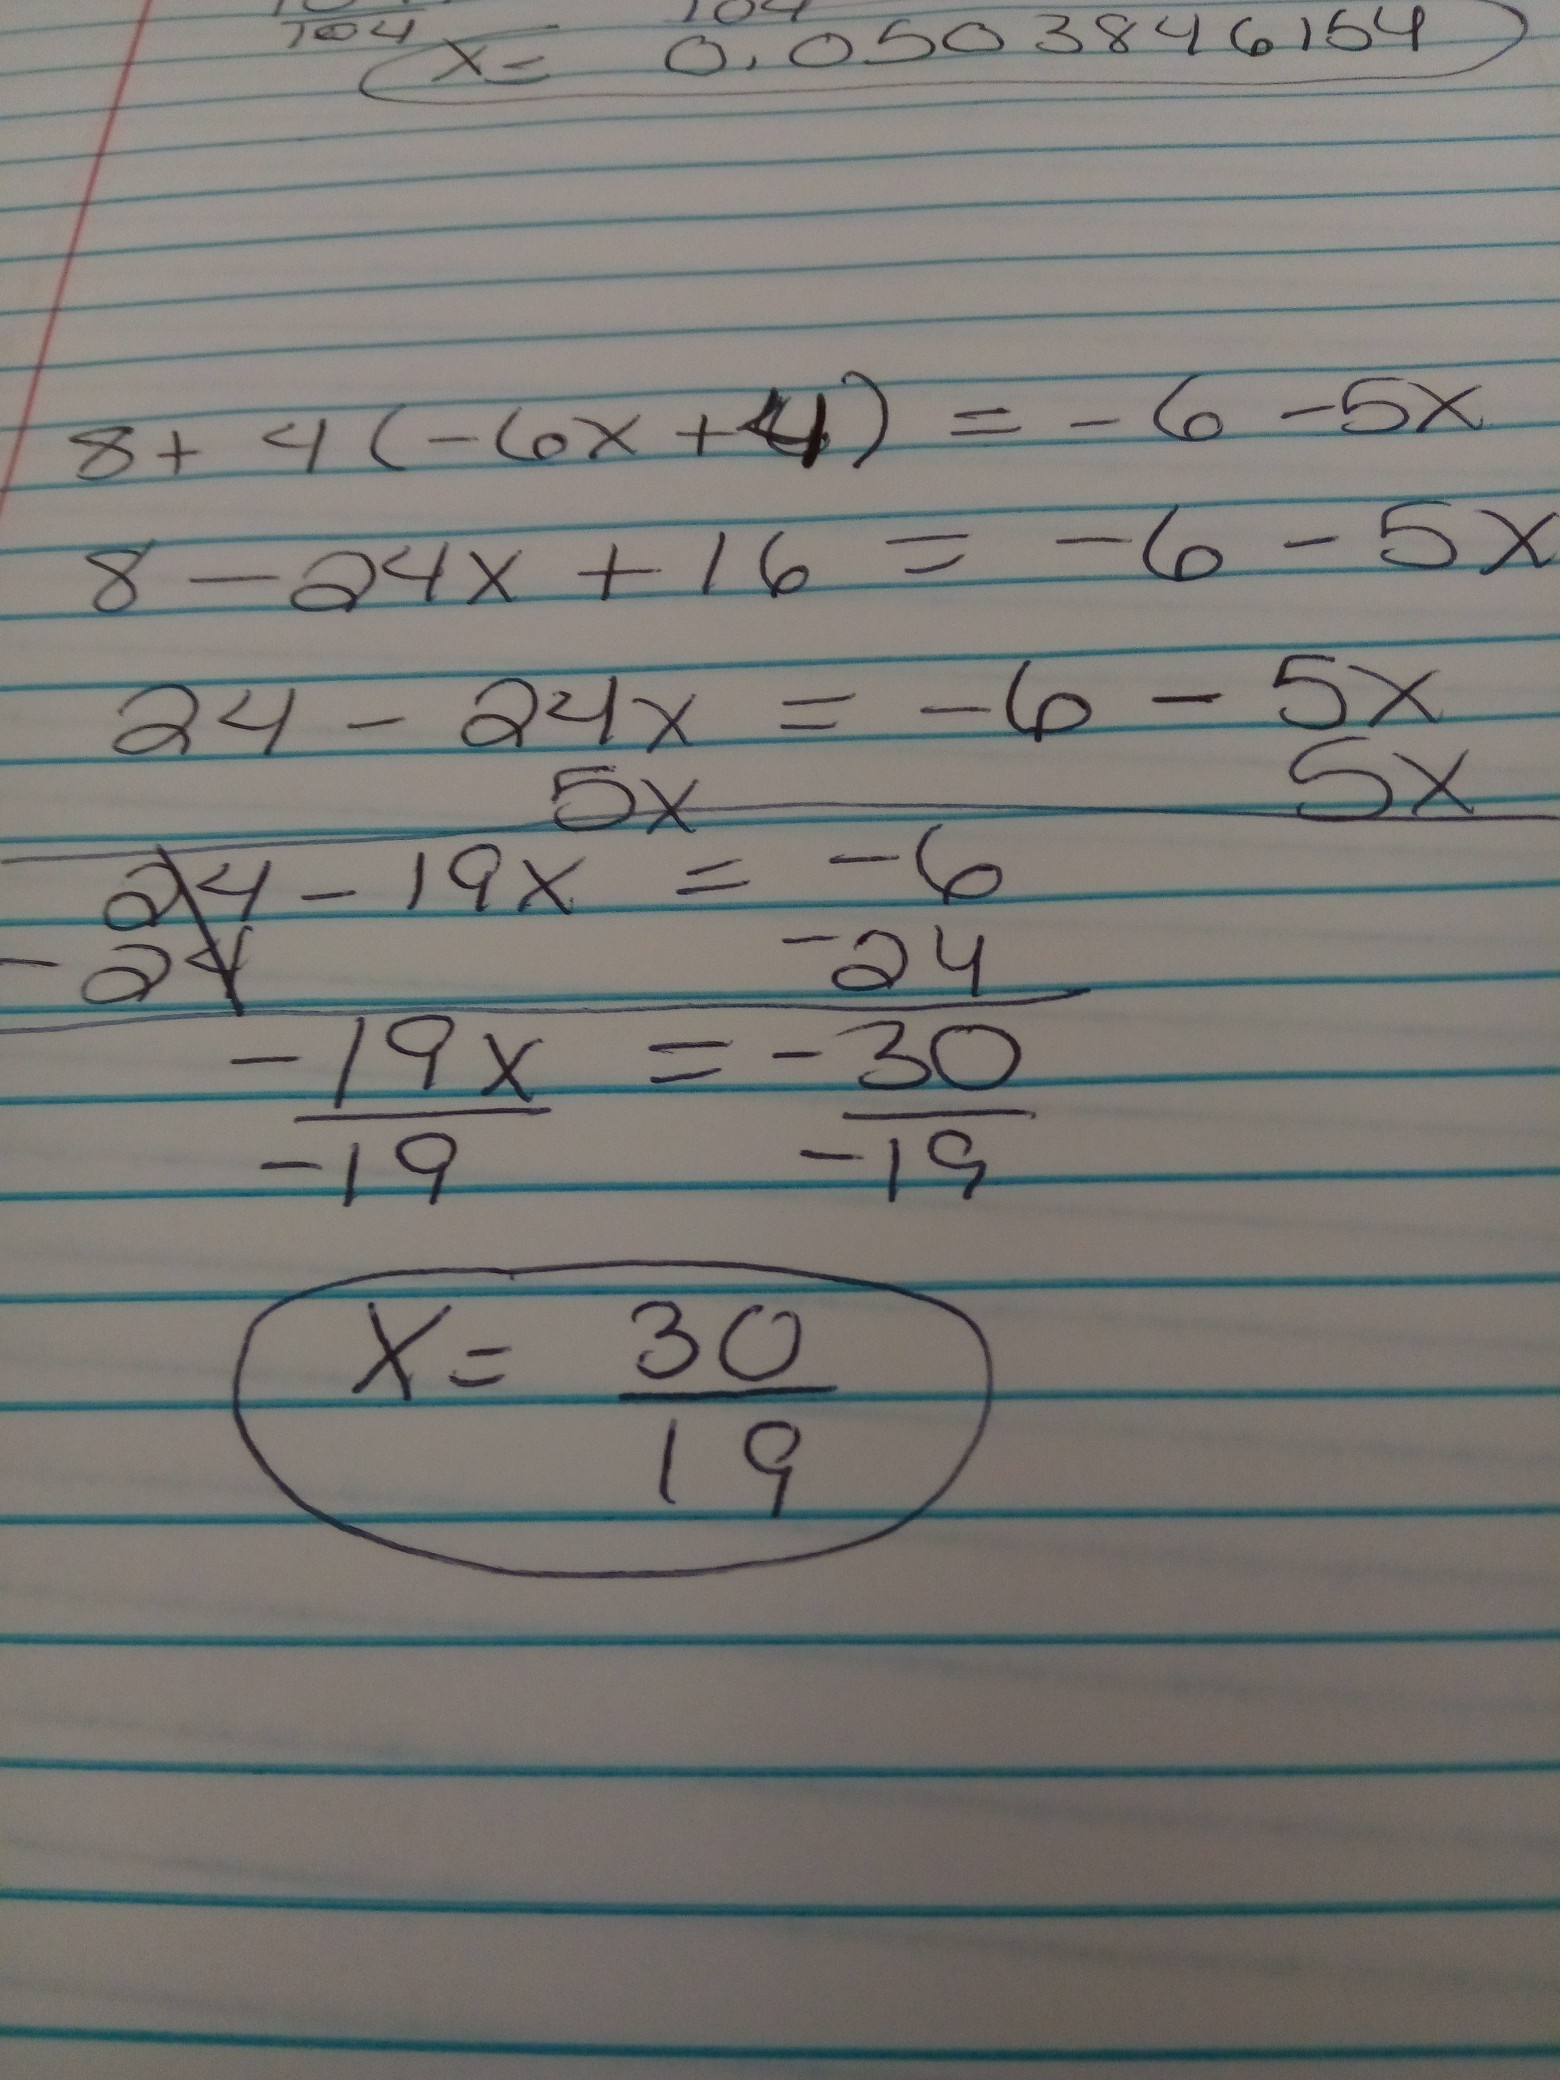 104
104
x= 0.0503846154
8+ 4(-6x+4) = -6 -5x
8 - 24x + 16 = -6 - 5x
24 - 24x = -6 - 5x
5x 5x
24 - 19x = -6
-24 -24
-19x = -30
-19 -19
x= 30
19